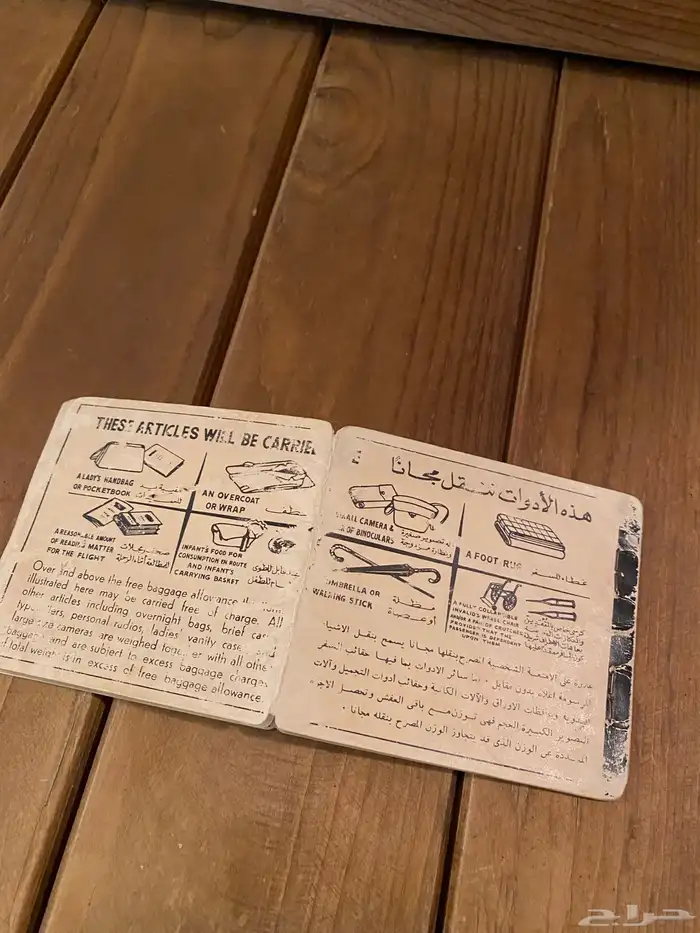 THESE ARTICLES WILL BE CARRIE
A LADY'S HANDBAG
OR POCKETBOOK
AN OVERCOAT
OR WRAP
A REASONABLE AMOUNT
OF READING MATTER
FOR THE FLIGHT
للمطالعة أثناء الرحلة
INFANT'S FOOD FOR
CONSUMPTION EN ROUTE
AND INFANT'S
CARRYING BASKET
Over and above the free baggage allowance
illustrated here may be carried free of charge. All
other articles including overnight bags, brief
personal radios, ladies vanity
large size cameras are weighed together with all other
and are subject to excess baggage charges
total weigh is in excess of free baggage allowance.
هذه الأدوات تنقل مجاناً
SMALL CAMERA &
OF BINOCULARS
آلة تصوير صغيرة
A FOOT RUG
غطاء للسفر
UMBRELLA OR
WALKING STICK
مظلة
أو عصاة
A FULLY COLLAPSIBLE
INVALID'S WHEEL CHAIR
AND/OR A PAIR OF CRUTCHES
PROVIDED THAT THE
PASSENGER IS DEPENDENT
UPON THEM
علاوة على الامتعة الشخصية المصرح بنقلها مجانا يسمح بنقل الاشياء
المرسومة اعلاه بدون مقابل . اما سائر الادوات بما فيها حقائب السفر
اليدوية ومحافظات الاوراق والآلات الكاتبة وحقائب أدوات التجميل وآلات
التصوير الكبيرة الحجم فهى توزن مع باقى العفش وتحصل الاجرة
على الوزن الذى قد يتجاوز الوزن المصرح بنقله مجانا .
حراج